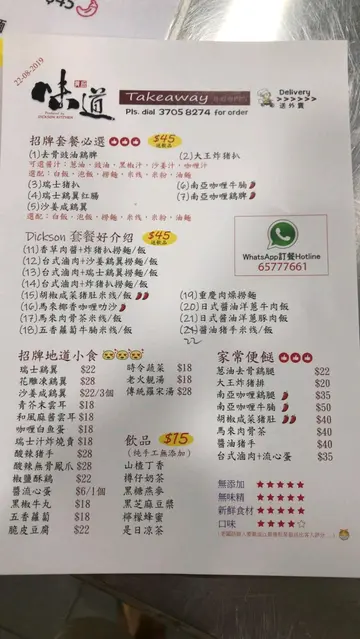 22-08-2019
味道
DICKSON KITCHEN
Takeaway
Pls. dial 3705 8274 for order
Delivery
>>>>>>
送外賣
招牌套餐必選 $45
(1)去骨豉油鷄髀
(2)大王炸豬扒
可選醬汁：葱油，豉油，黑椒汁，沙姜汁，咖喱汁
選配：白飯，泡飯，撈麵，米线，米粉，油麵
(3)瑞士豬扒
(6)南亞咖喱牛腩
(4)瑞士鷄翼紅腸
(7)南亞咖喱鷄髀
(5)沙姜咸鷄翼
選配：白飯，泡飯，撈麵，米线，米粉，油麵
Dickson 套餐好介紹 $45
(11)香草肉醬+炸豬扒撈麵/飯
(12)台式滷肉+沙姜鷄翼撈麵/飯
(13)台式滷肉+瑞士鷄翼撈麵/飯
(14)台式滷肉+炸豬扒撈麵/飯
(15)胡椒咸菜豬肚米线/飯
(16)馬來椰香咖喱叻沙
(17)馬來肉骨茶米线/飯
(18)五香蘿蔔牛腩米线/飯
(19)重慶肉燥撈麵
(20)日式醬油洋蔥牛肉飯
(21)日式醬油洋蔥豚肉飯
醬油豬手米线/飯
22
WhatsApp訂餐Hotline
65777661
招牌地道小食
瑞士鷄翼 $22
花雕凍鷄翼 $28
沙姜咸鷄翼 $22/3個
青芥木雲耳 $18
和風麻醬雲耳 $18
咖喱白魚蛋 $18
瑞士汁炸燒賣 $18
酸辣豬手 $28
酸辣無骨鳳爪 $28
椒鹽酥鷄 $22
醬流心蛋 $6/1個
黑椒牛丸 $18
五香蘿蔔 $18
脆皮豆腐 $22
時令蔬菜 $18
老火靚湯 $18
傳統羅宋湯 $28
飲品 $15
(純手工無添加)
山楂丁香
樽仔奶茶
黑糖燕麥
黑芝麻豆漿
檸檬蜂蜜
是日凉茶
家常便餸
葱油去骨鷄腿 $22
大王炸豬排 $20
南亞咖喱鷄腿 $35
南亞咖喱牛腩 $50
胡椒咸菜豬肚 $40
馬來肉骨茶 $40
醬油豬手 $40
台式滷肉+流心蛋 $35
無添加 ★★★★★
無味精 ★★★★★
新鮮食材 ★★★★★
口味 ★★★★☆